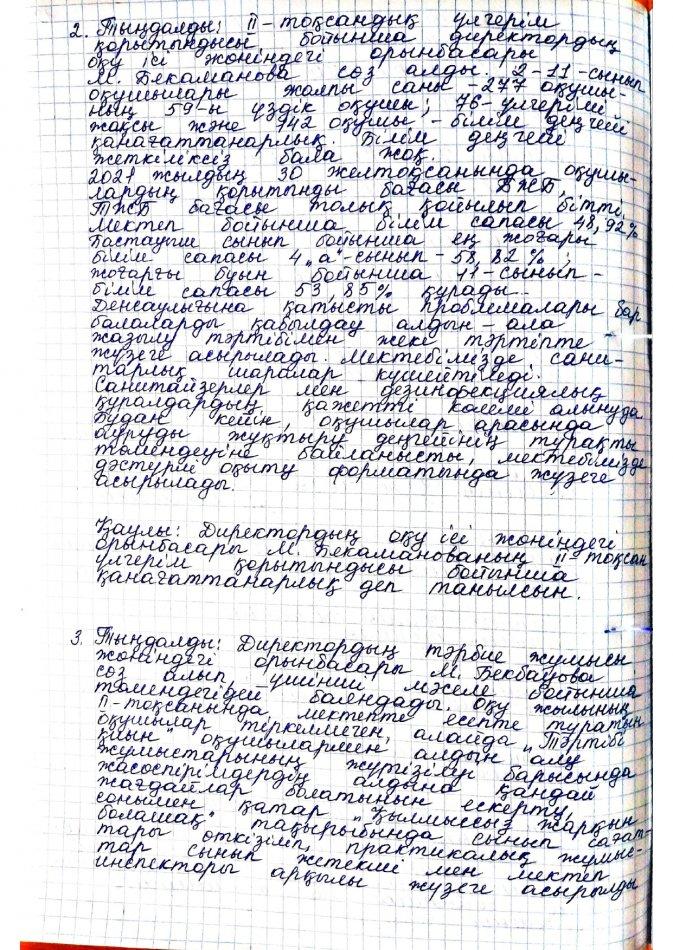 2. Тыңдалды: II-тоқсандық үлгерім
қорытындысы бойынша директордың
оқу ісі жөніндегі орынбасары
М. Бекаманова сөз алды. 2-11-сынып
оқушылары жалпы саны -277 оқушы-
ның 59-ы үздік оқушы; 76-үлгерімі
жақсы және 142 оқушы - білім деңгейі
қанағаттанарлық. Білім деңгейі
жеткіліксіз бала жоқ.
2021 жылдың 30 желтоқсанында оқушы-
лардың қорытынды бағасы БЖБ,
ТЖБ бағасы толық қойылып бітті.
Мектеп бойынша білім сапасы 48,92%
Бастауыш сынып бойынша ең жоғары
білім сапасы 4 „а"-сынып - 58,82 %;
жоғарғы буын бойынша 11-сынып -
білім сапасы 53,85% құрады.
Денсаулығына қатысты проблемалары бар
балаларды қабылдау алдын-ала
жазылу тәртібімен жеке тәртіпте
жүзеге асырылады. Мектебімізде сани-
тарлық шаралар күшейтіледі.
Санитайзерлер мен дезинфекциялық
құралдардың қажетті көлемі алынуда.
Бұдан кейін, оқушылар арасында
ауруды жұқтыру деңгейінің тұрақты
төмендеуіне байланысты, мектебімізде
дәстүрлі оқыту форматында жүзеге
асырылады.
Қаулы: Директордың оқу ісі жөніндегі
орынбасары М. Бекаманованың II тоқсан
үлгерім қорытындысы бойынша
қанағаттанарлық деп танылсын.
3. Тыңдалды: Директордың тәрбие жұмысы
жөніндегі орынбасары М. Бекбауова
сөз алып, үшінші мәселе бойынша
төмендегідей баяндады. Оқу жылының
II-тоқсанында мектепте есепте тұратын
оқушылар тіркелмеген, алайда „Тәртібі
қиын" оқушылармен алдын алу
жұмыстарының жүргізілуі барысында
жасөспірімдердің алдына қандай
жағдайлар болатынын ескерту,
сонымен қатар „Қылмыссыз жарқын
болашақ" тақырыбында сынып сағат-
тары өткізіліп, практикалық жұмыс-
тар сынып жетекші мен мектеп
инспекторы арқылы жүзеге асырылды